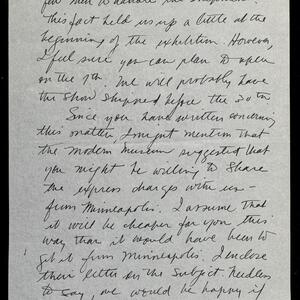 for men to handle the shipment.
This fact held us up a little at the
beginning of the exhibition. However,
I feel sure you can plan to open
on the 7th. We will probably have
the show shipped before the 30th
Since you have written concerning
this matter, I might mention that
the Modern Museum suggested that
you might be willing to share
the express charges with us -
from Minneapolis. I assume that
it will be cheaper for you this
way than it would have been to
get it from Minneapolis. I enclose
their letter on the subject. Needless
to say, we would be happy if